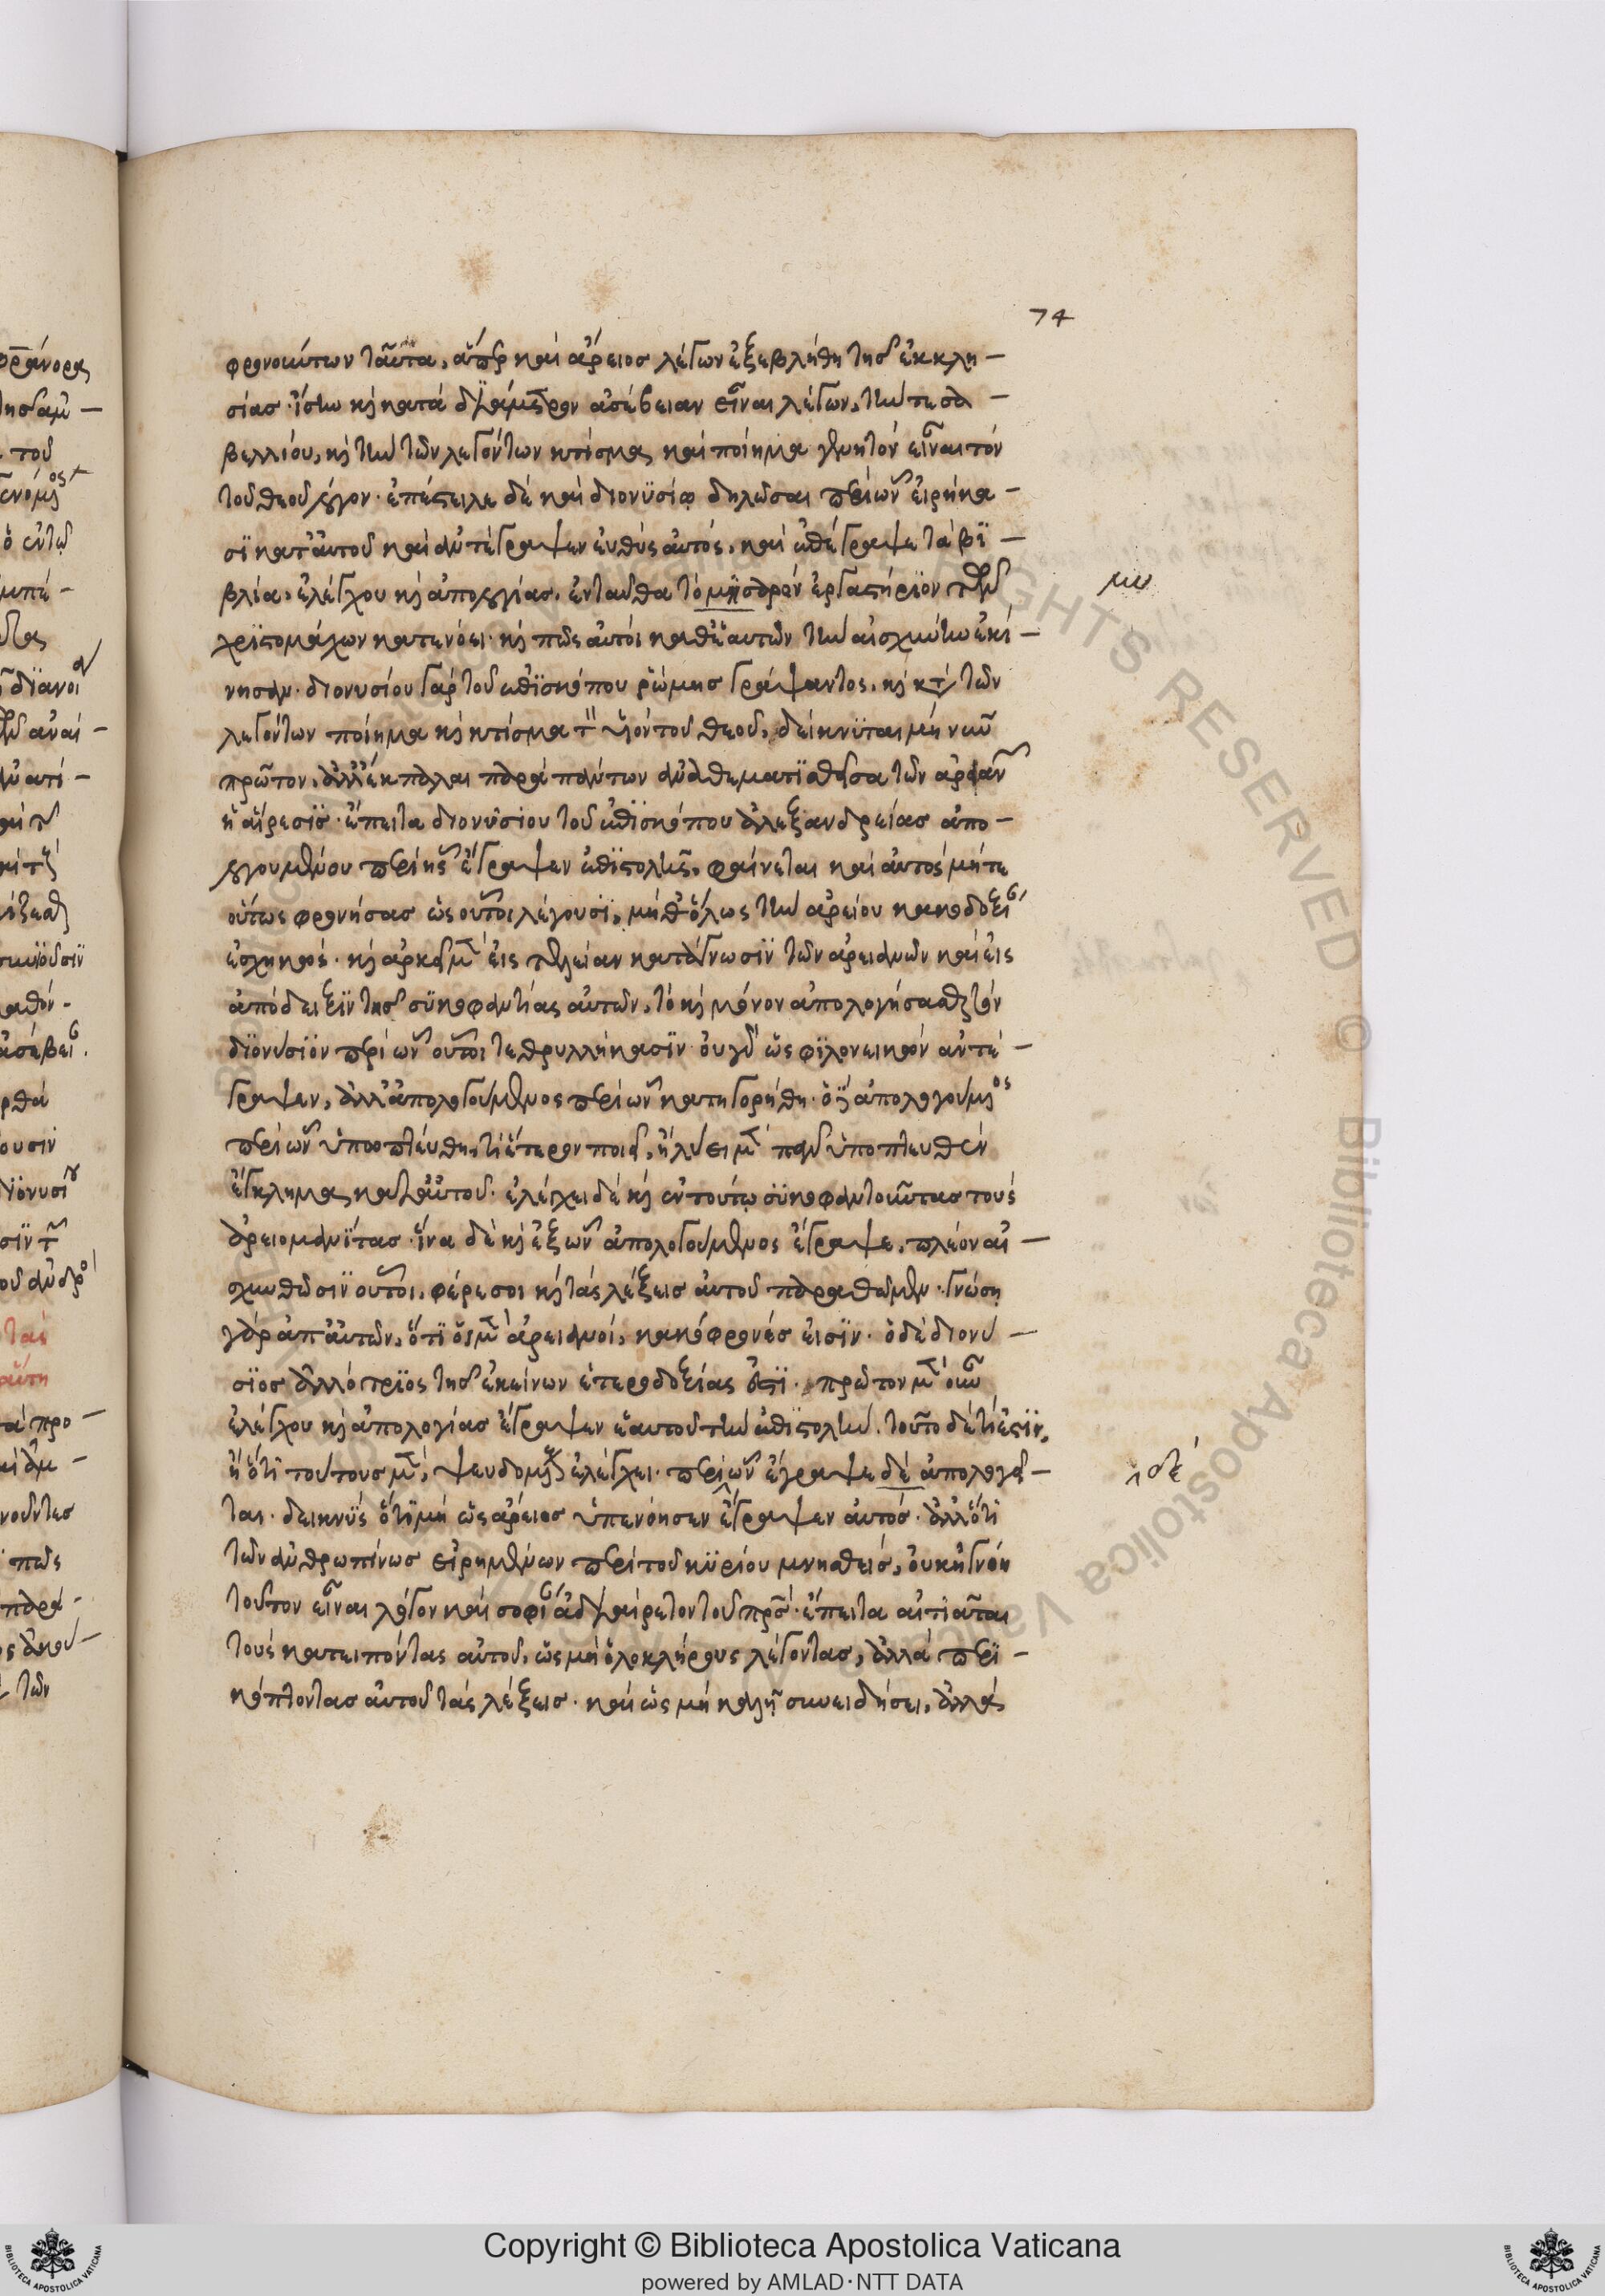 74
φρονούντων ταῦτα, ἅπερ καὶ ἄρειος λέγων ἐξεβλήθη τῆς ἐκκλη-
σίας· ἴσην κὶ κατὰ διάμετρον ἀσέβειαν εἶναι λέγων, τήν τε σα-
βελλίου, κὶ τὴν τῶν λεγόντων κτίσμα καὶ ποίημα γενητὸν εἶναι τὸν
τοῦ θεοῦ λόγον· ἐπέστειλε δὲ καὶ διονϋσίῳ δηλῶσαι περὶ ὧν εἰρήκα-
σϊ κατ' αὐτοῦ καὶ ἀντέγραψεν εὐθὺς αὐτός, καὶ ἐπέγραψε τὰ βϊ-
βλία, ἐλέγχου κὶ ἀπολογίας. ἐνταῦθα τὸ μϋσαρὸν ἐργαστήρϊον τῶν
μυ
χρϊστομάχων κατενόει· κὶ πῶς αὐτοὶ καθ' ἑαυτῶν τὴν αἰσχύνην ἐκί-
νησαν. διονυσίου γὰρ τοῦ ἐπϊσκόπου ῥώμης γράψαντος, κὶ κτ τῶν
λεγόντων ποίημα κὶ κτίσμα τ υἱὸν τοῦ θεοῦ, δείκνϋται μὴ νῦν
πρῶτον, ἀλλ' ἔκπαλαι παρὰ πάντων ἀναθεματϊσθεῖσα τῶν ἀρειανῶν
ἡ αἵρεσϊς· ἔπειτα διονϋσίου τοῦ ἐπϊσκόπου ἀλεξανδρείας ἀπο-
λογουμένου περὶ ἧς ἔγραψεν ἐπϊστολῆς, φαίνεται καὶ αὐτὸς μήτε
οὕτως φρονήσας ὡς οὗτοι λέγουσϊ, μήθ' ὅλως τὴν ἀρείου κακοδοξίαν
ἐσχηκώς· κὶ ἀρκεῖ μ εἰς τελείαν κατάγνωσϊν τῶν ἀρειανῶν καὶ εἰς
ἀπόδειξϊν τῆς σϋκοφαντίας αὐτῶν, τὸ κὶ μόνον ἀπολογήσασθαι τὸν
δϊονύσϊον περὶ ὧν οὗτοι τεθρυλλήκασϊν· οὐ γὰρ ὡς φϊλονεικῶν ἀντέ-
γραψεν, ἀλλ' ἀπολογούμενος περὶ ὧν κατηγορήθη· ὁ δὲ ἀπολογούμενος
περὶ ὧν ὑποπτεύθη, τί ἕτερον ποιεῖ, ἢ λύει μ πᾶν ὑποπτευθὲν
ἔγκλημα κατ' αὐτοῦ· ἐλέγχει δὲ κὶ ἐν τούτῳ σϋκοφαντοῦντας τοὺς
ἀρειομανίτας· ἵνα δὲ κὶ ἐξ ὧν ἀπολογούμενος ἔγραψε, πλέον αἰ-
σχυνθῶσϊν οὗτοι, φέρε σοι κὶ τὰς λέξεις αὐτοῦ παραθῶμεν· γνώσῃ
γὰρ ἀπ' αὐτῶν, ὅτϊ οἱ μ ἀρειανοὶ, κακόφρονές εἰσϊν· ὁ δὲ διονύ-
σϊος ἀλλότρϊος τῆς ἐκείνων ἑτεροδοξίας ἐστϊ· πρῶτον μ οὖν
ἐλέγχου κὶ ἀπολογίας ἔγραψεν ἑαυτοῦ τὴν ἐπϊστολήν. τοῦτο δὲ τί ἐστϊν,
ἢ ὅτϊ τούτους μ, ψευδομένους ἐλέγχει· περὶ ὧν ἔγραψε δὲ ἀπολογεῖ-
ιδέ
ται· δεικνϋς ὅτϊ μὴ ὡς ἄρειος ὑπενόησεν ἔγραψεν αὐτός· ἀλλ' ὅτϊ
τῶν ἀνθρωπίνως εἰρημένων περὶ τοῦ κϋρίου μνησθεὶς, οὐκ ἠγνόη
τοῦτον εἶναι λόγον καὶ σοφίαν ἀδιαίρετον τοῦ πρς· ἔπειτα αἰτιᾶται
τοὺς κατειπόντας αὐτοῦ, ὡς μὴ ὁλοκλήρους λέγοντας, ἀλλὰ περϊ-
κόπτοντας αὐτοῦ τὰς λέξεις· καὶ ὡς μὴ καλῇ συνειδήσει, ἀλλὰ
Copyright © Biblioteca Apostolica Vaticana
powered by AMLAD·NTT DATA